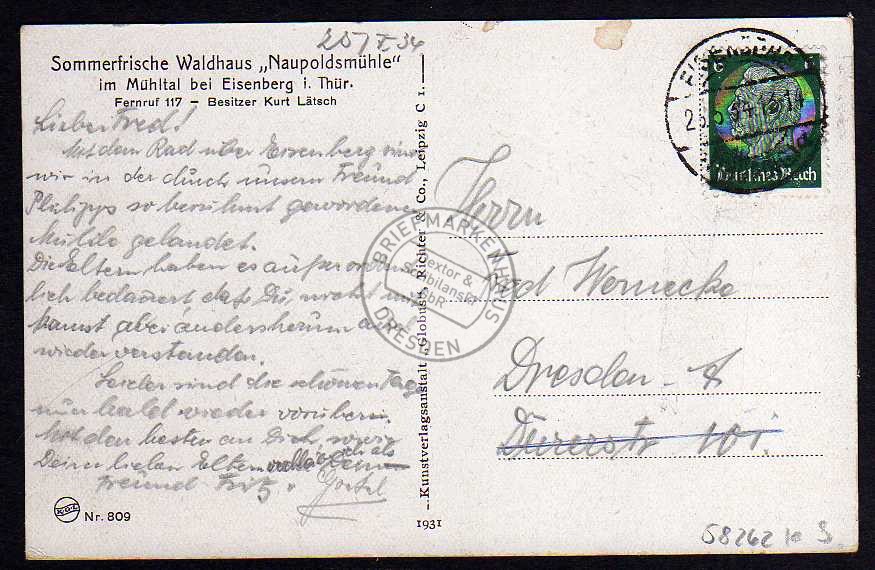 25/V.34
Sommerfrische Waldhaus „Naupoldsmühle“
im Mühltal bei Eisenberg i. Thür.
Fernruf 117 — Besitzer Kurt Lätsch
Lieber Fred!
Mit dem Rad über Eisenberg sind
wir in der durch unsern Freund
Philipps so berühmt gewordenen
Mühle gelandet.
Die Eltern haben es außerordent-
lich bedauert daß Du, nicht
kamst aber andersherum auch
wieder verstanden.
Leider sind die schönen Tage
nun bald wieder vorüber.
Mit den besten an Dich, sowie
Deinen lieben Eltern als
Freund Fritz.
Nr. 809
Kunstverlagsanstalt „Globus“, Richter & Co., Leipzig C 1.
1931
EISENBERG
6 6
Deutsches Reich
Herrn
Fred Wernecke
Dresden-A
Dürerstr 101.
BRIEFMARKENHAUS
Textor &
Schibilanski
GbR
DRESDEN
58262